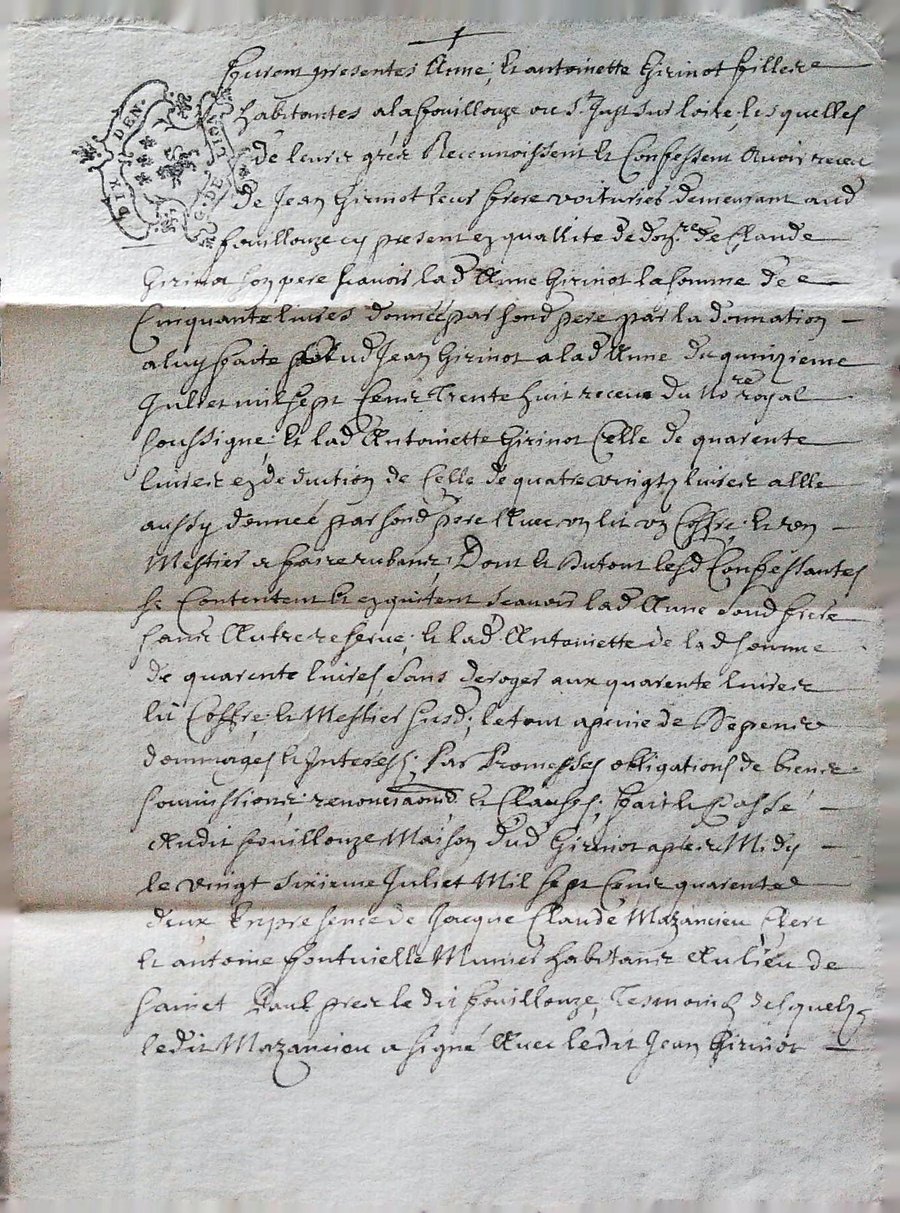 DIX DEN. G. DE CUIT
furent presentes Anne, et antoinette Girinot filles
habitantes a la fouillouze ou St Just sur loire, les quelles
de leurs grés Reconnoissent et Confessent Avoir receu
de Jean Girinot leur frere voiturier demeurant aud
fouillouze cy present en quallité de de Claude
Girinot son pere scavoir lad Anne Girinot la somme de
Cinquante livres donnée par sond pere par la donnation
a luy faite aud Jean Girinot a lad Anne du quinzieme
Juliet mil sept Cens Trente huit receue du Nore royal
soussigné, et lad Antoinette Girinot Celle de quarente
livres en deduction de Celle de quatre vingts livres a elle
aussy donneé par sond pere Avec un lit un Coffre, et un
Mestier a faire rubans, Dont et Dutout lesd Confessantes
se Contentent et en quitent scavoir lad Anne sond frere
sans Autre reserve, et lad Antoinette de lad somme
de quarente livres sans deroger aux quarente livres
lit Coffre, et Mestier susd, le tout a peine de Depens
dommages et Interets, Par Promesses obligations de biens
soumissions, renonciaond et Clauses, fait et Passé
Audit fouillouze Maison dud Girinot apres Midy
le vingt sixieme Juliet Mil sept Cens quarente
deux En presence de Jacque Claude Mazancieu Clerc
et antoine Munier habitans Au lieu de
sainct Paul pres le dit fouillouze, Tesmoins desquels
ledit Mazancieu a signé Avec ledit Jean Girinot